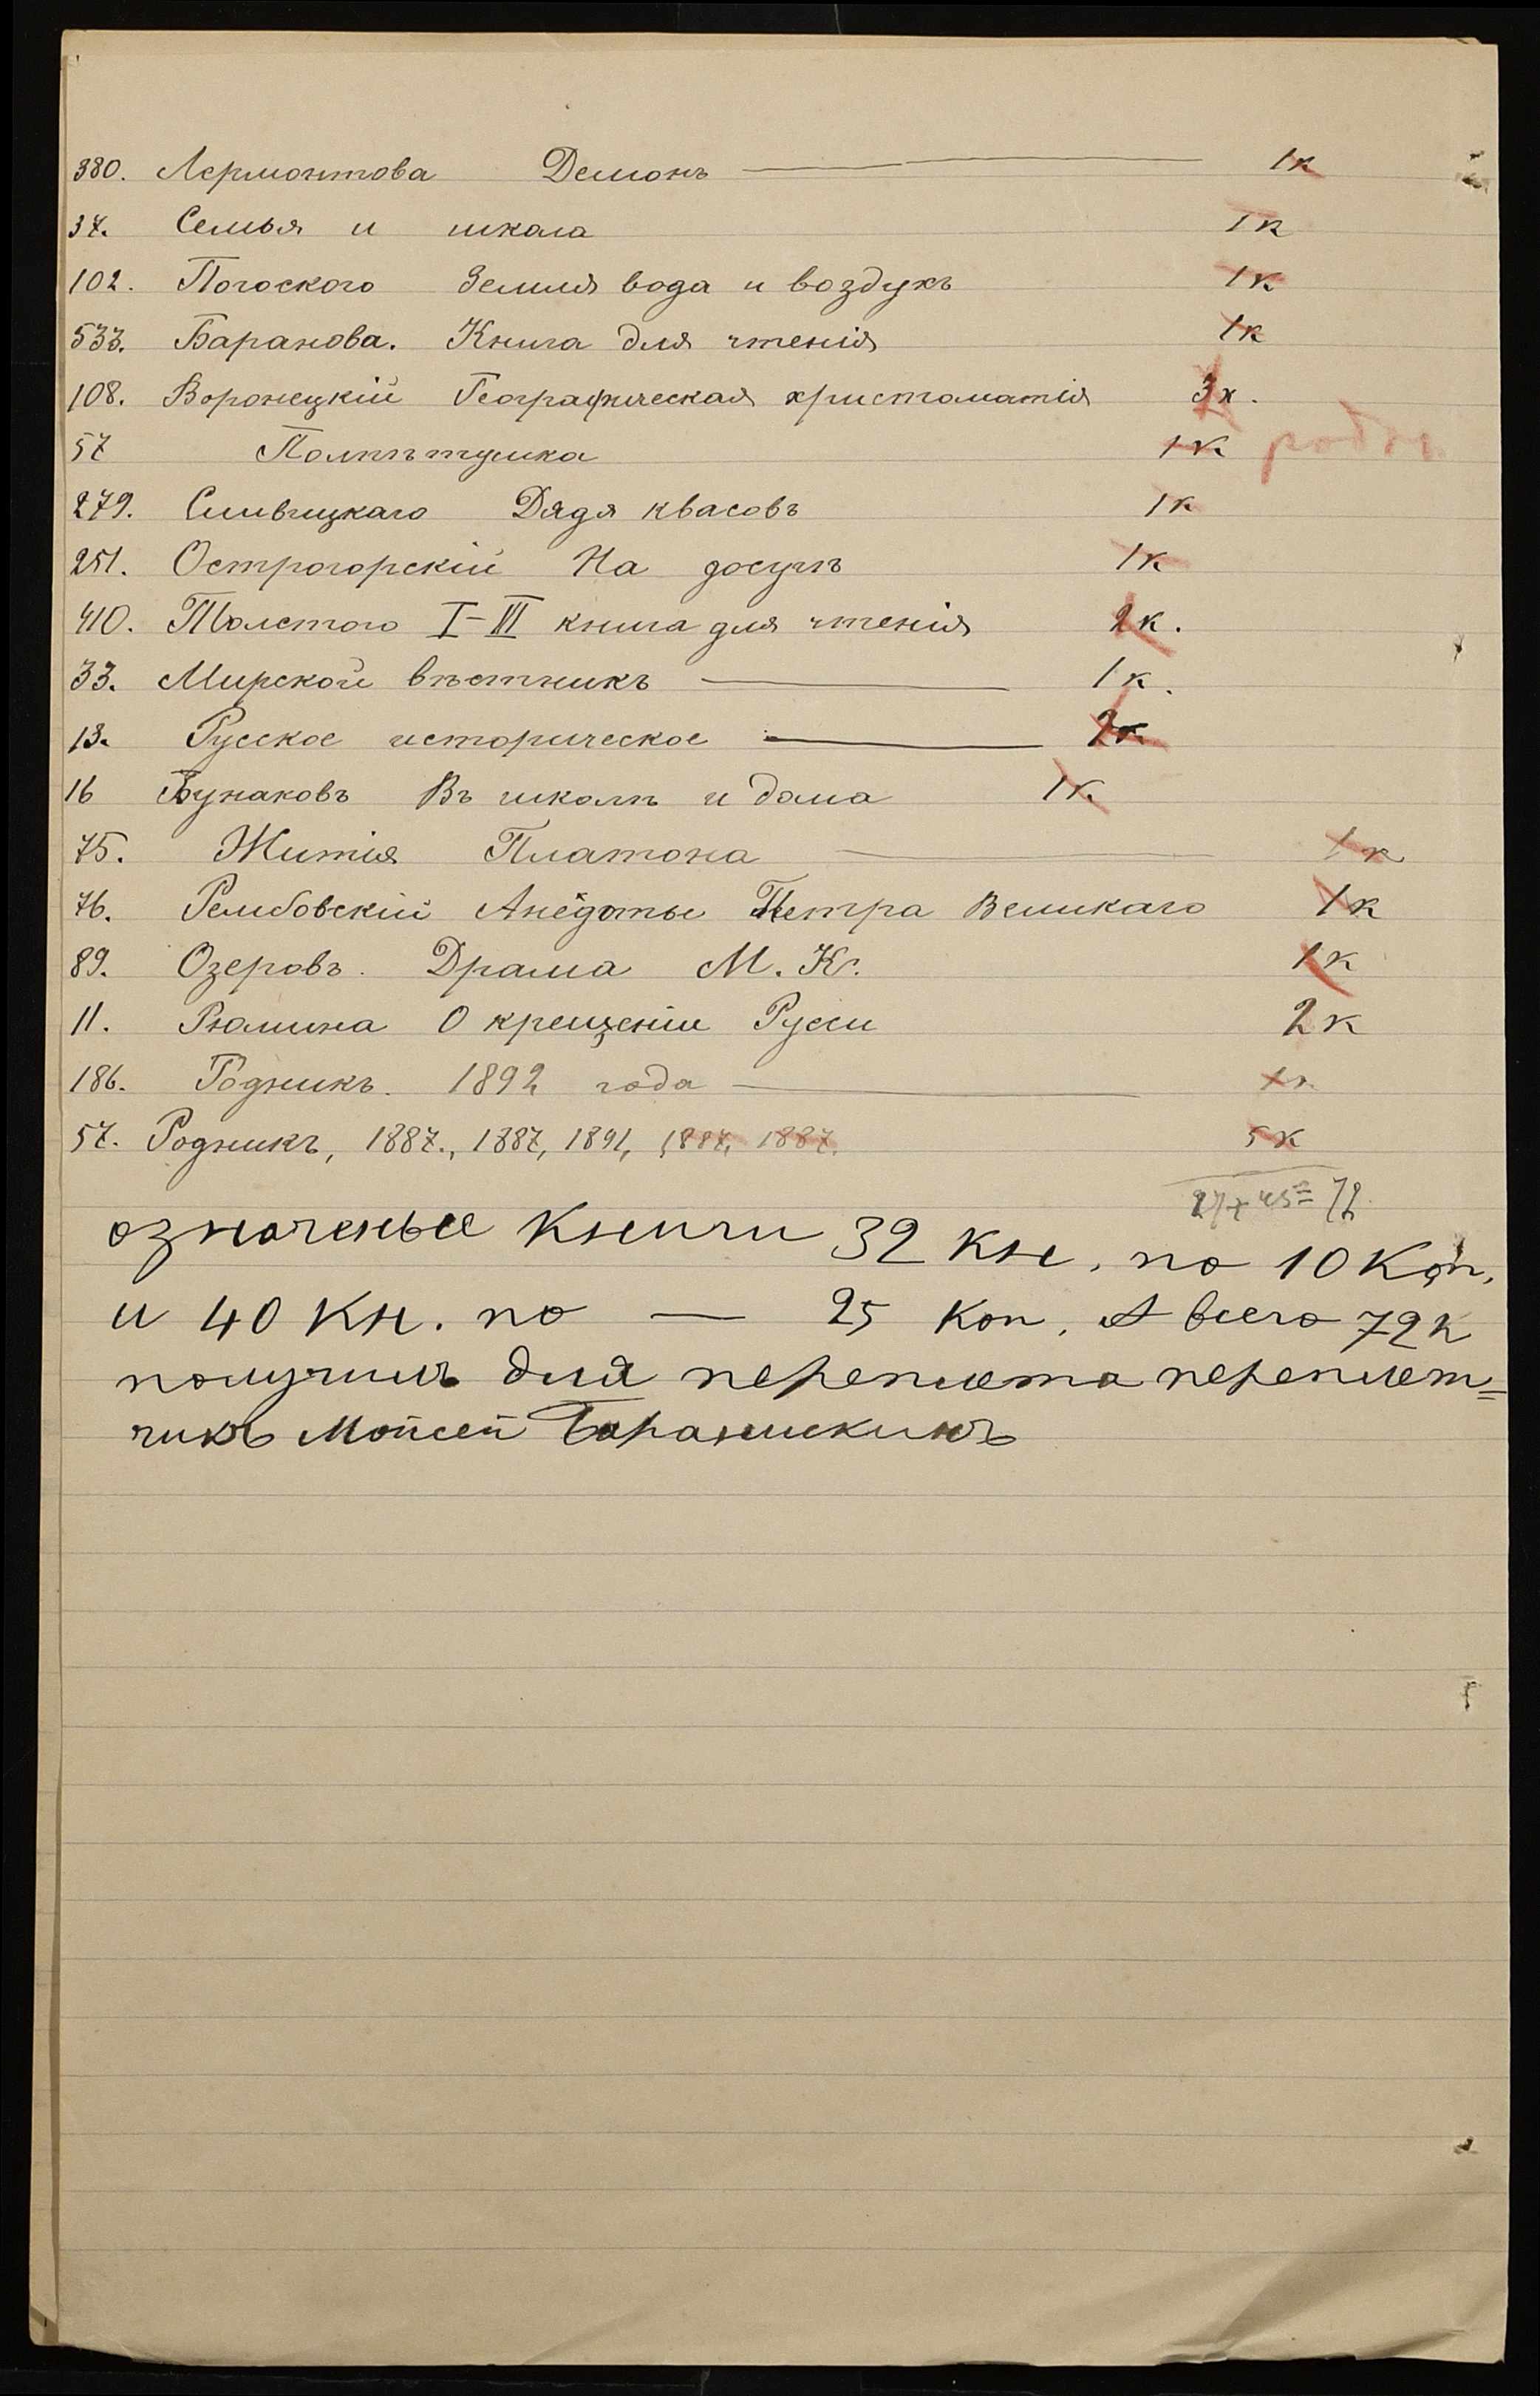 380. Лермонтова Демонъ — 1к
37. Семья и школа 1к
102. Погоского Земля вода и воздухъ 1к
533. Баранова. Книга для чтенія 1к
108. Воронецкій Географическая христоматія 3к.
57 Полпѣтушка 1к
279. Сливицкаго Дядя квасовъ 1к
251. Острогорскій На досугѣ 1к
410. Толстого I-III книга для чтенія 2к.
33. Мирской вѣстникъ — 1к.
13. Русское историческое — 2к
16 Бунаковъ Въ школѣ и дома 1к
75. Житія Платона — 1к
76. Рембовскій Анёдоты Петра Великаго 1к
89. Озеровъ. Драма М. К. 1к
11. Рюмина О крещеніи Русси 2к
186. Родникъ. 1892 года — 1к
57. Родникъ, 1887., 1887, 1891, 1887, 1887. 5к
27+45=72
означеные Книги 32 Кн. по 10 Коп.
и 40 Кн. по — 25 Коп. А всего 72 к
получилъ для переплета переплет=
чикъ Мойсей